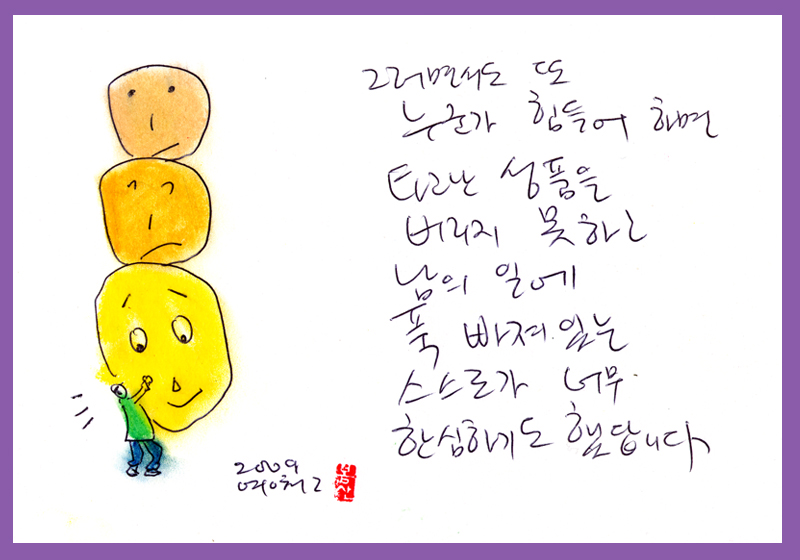 그러면서도 또
누군가 힘들어 하면
타고난 성품을
버리지 못하고
남의 일에
푹 빠져있는
스스로가 너무
한심하기도 했답니다
2009